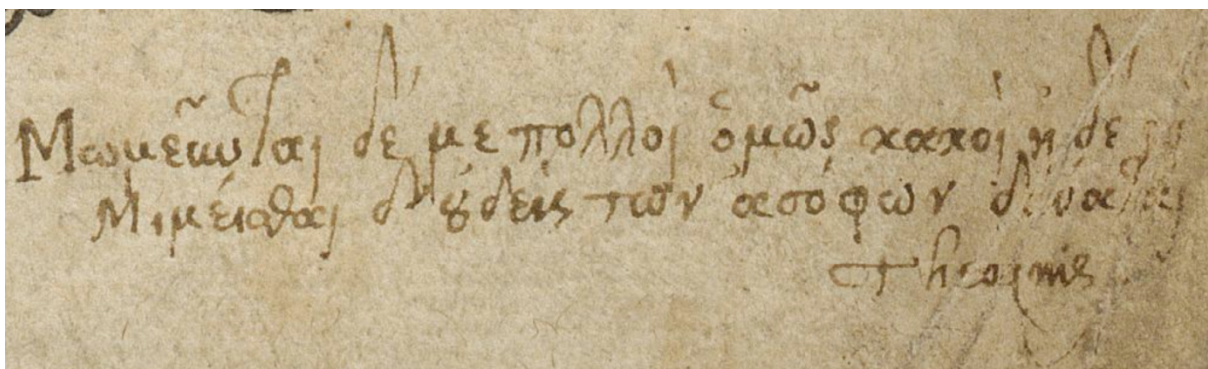 Μωμεῦνται δέ με πολλοὶ ὁμῶς κακοὶ ἠδέ
Μιμεῖσθαι δ' οὐδεὶς τῶν ἀσόφων δύναται
Theognis